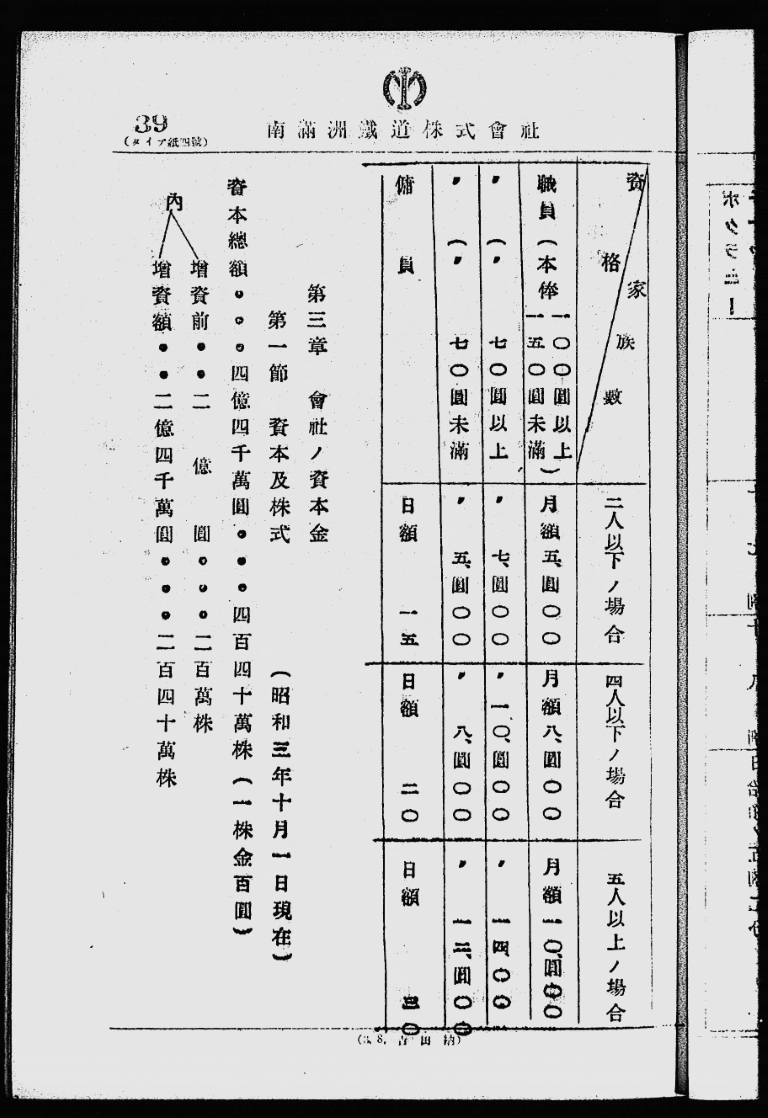 39
(タイプ紙四號)
南滿洲鐵道株式會社
資格 家族數
二人以下ノ場合
四人以下ノ場合
五人以上ノ場合
職員(本俸一〇〇圓以上一五〇圓未滿)
月額五、圓〇〇
月額八、圓〇〇
月額一〇、圓〇〇
〃(七〇圓以上
〃七、圓〇〇
〃一〇、圓〇〇
〃一四、〇〇
〃(〃七〇圓未滿
〃五、圓〇〇
〃八、圓〇〇
〃一三、圓〇〇
傭員
日額一五
日額二〇
日額三〇
第三章 會社ノ資本金
第一節 資本及株式 (昭和三年十月一日現在)
資本總額•••四億四千萬圓•••四百四十萬株(一株金百圓)
內
增資前••二億圓•••二百萬株
增資額••二億四千萬圓•••二百四十萬株